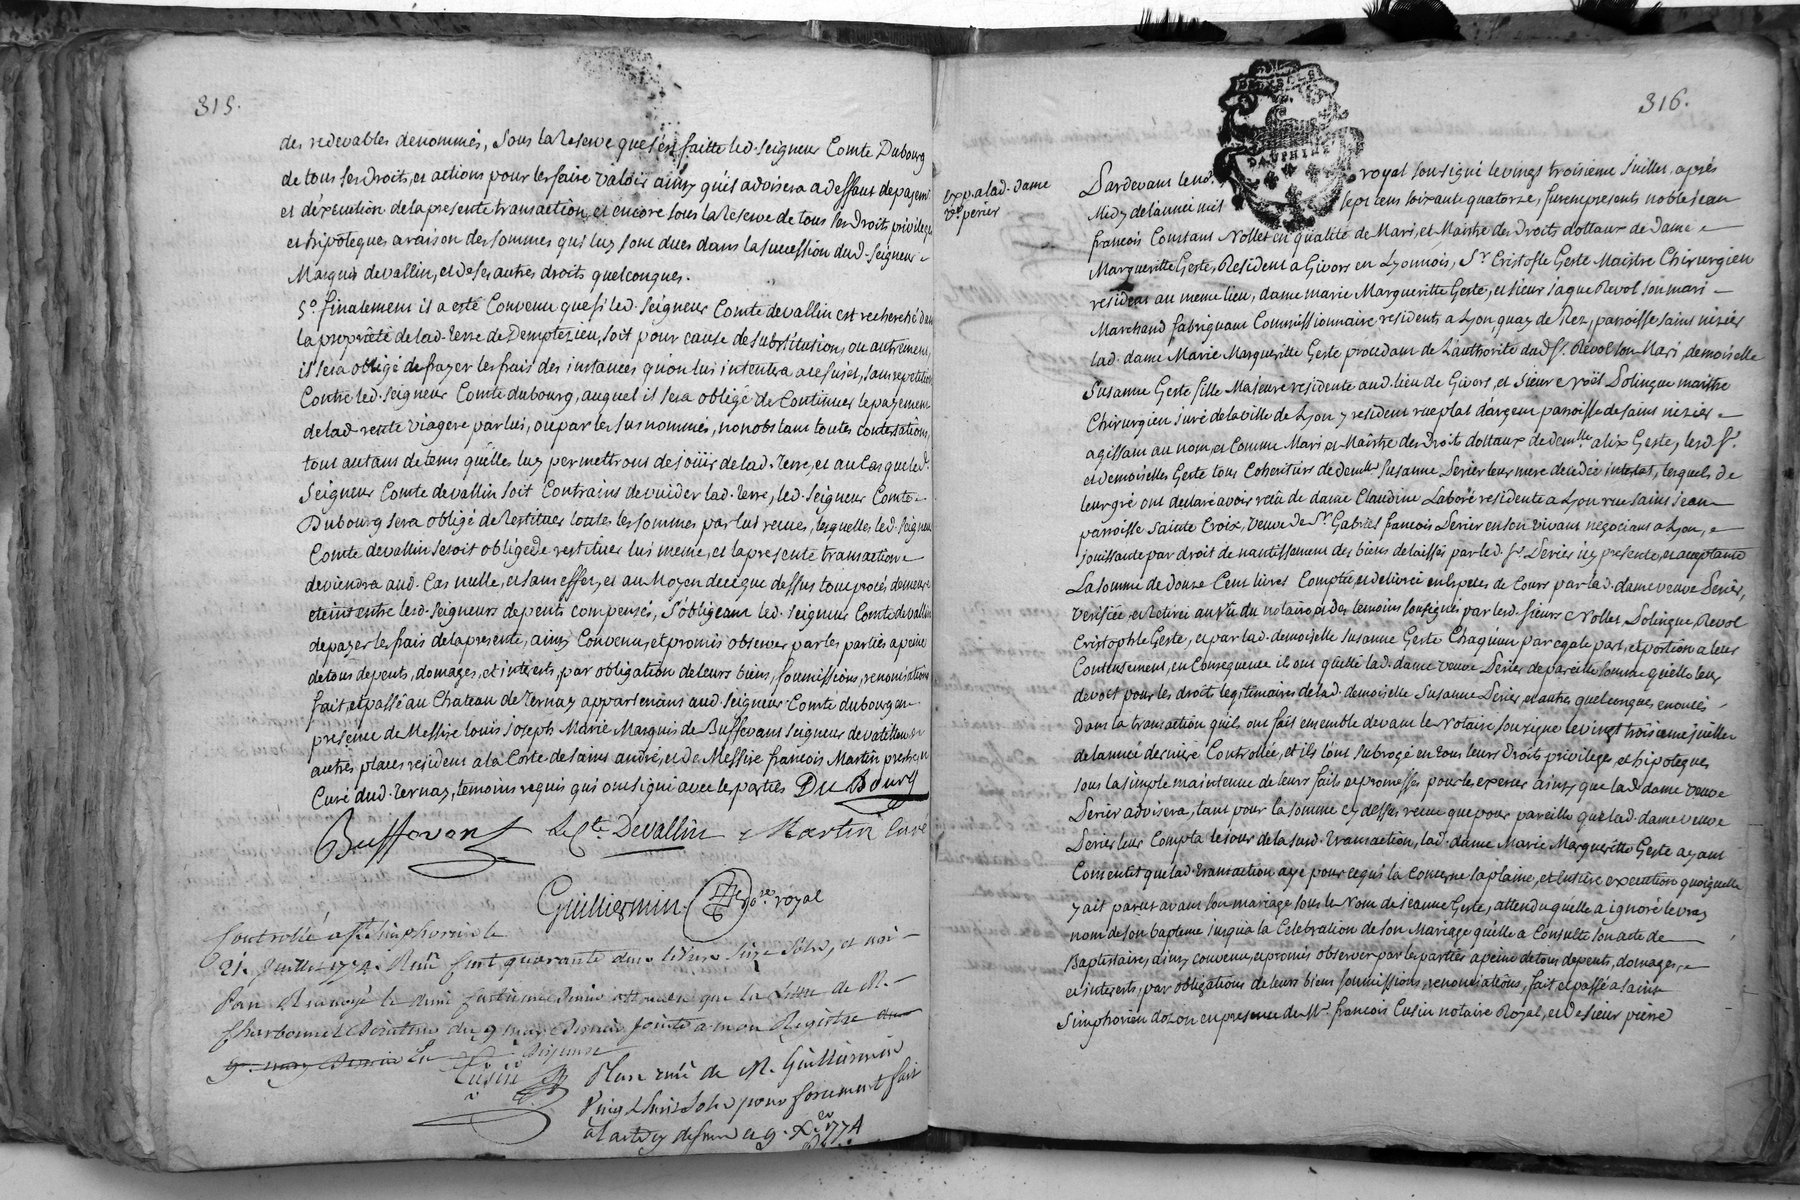 315.
des redevables denommés, sous la reserve que s'est faitte led. seigneur Comte Dubourg
de tous ses droits, et actions pour les faire valoir ainsy qu'il advisera a deffaut de payem.t
et d'éxecution de la presente transaction, et encore sous la reserve de tous ses droits, privileges
et hipoteques a raison des sommes qui luy sont dues dans la succession dud. seigneur
Marquis devallin, et de ses autres droits quelconques.
5.o finalement il a esté Convenu que si led. seigneur Comte devallin est recherché dans
la propriété de lad. terre de Demptezieu, soit pour cause de substitution, ou autrement,
il sera obligé de frayer les frais des instances qu'on lui intentera a ce sujet, sans repetition
Contre led. seigneur Comte dubourg, auquel il sera obligé de Continuer le payement
de lad. rente viagere par lui, ou par les susnommés, nonobstant toutes contestations,
tout autant de tems qu'elles luy permettront de joüir de lad. terre, et au Cas que led.
seigneur Comte devallin soit Contraint de vuider lad. terre, led. seigneur Comte
Dubourg sera obligé de restituer toutes les sommes par lui recues, lesquelles led. seigneur
Comte devallin seroit obligé de restituer lui meme, et la presente transaction
deviendra aud. Cas nulle, et sans effet, et au moyen de ce que dessus tout procés demeure
eteint entre lesd. seigneurs depents compensés, s'obligeant led. seigneur Comte devallin
de payer les frais de la presente, ainsy Convenu, et promis observer par les parties a peine
de tous depents, domages, et interets, par obligation de leurs biens, soumissions, renonciations
fait et passé au Chateau de Ternay appartenant aud. seigneur Comte dubourg en
presence de Messire louis joseph Marie Marquis de Buffevant seigneur de vatillieu et
autres places resident a la Coste de saint andré, et de Messire françois Martin prestre et
Curé dud. Ternay, temoins requis qui ont signé avec les parties Du Bourg
Buffevant Le C.te Devallin Martin Curé
Guilliermin no.re royal
Controllé a St. Simphorien le
21. Juillet 1774. Reçu sept quarante deux livres seize sols, et
renvoyé le demi centieme denier attendu que la lettre de M.
Charbonnel Directeur du 9 mars dernier jointe a mon Registre
9. mars dernier
Cusin
Plus reçu de M. Guilliermin
Vingt huit sols pour
a l'acte cy dessus ce 9. X.re 1774
316.
DAUPHINE
exp.a lad. dame
v.e perier
Pardevant le no.re royal sousigné le vingt troisieme juillet, aprés
Midy de l'année mil sept cent soixante quatorze, furent presents noble jean
françois Constant Nollet en qualité de Mari, et Maitre des droits dottaux de dame
Margueritte Geste, Resident a Givors en Lyonnois, S.r Cristofle Geste Maistre Chirurgien
resident au meme lieu, dame marie Margueritte Geste, et sieur jaque Revol son mari
Marchand fabriquant Commissionnaire residents a Lyon, quay de Rez, paroisse saint nizier
lad. dame Marie Margueritte Geste procedant de l'authorité dud. S.r Revol son Mari, demoiselle
Susanne Geste fille Majeure residente aud. lieu de Givors, et sieur Noël Dolingue maitre
Chirurgien juré de la ville de Lyon y resident rue plat d'argent paroisse de saint nizier
agissant au nom, et Comme Mari et Maitre des droits dottaux de dem.lle alix Geste, lesd. S.rs
et demoiselles Geste tous Coheritiers de dem.lle Susanne Perier leur mere decedée intestat, lesquels de
leur gré ont declaré avoir recû de dame Claudine Laboré residente a Lyon rue saint jean
paroisse sainte Croix, veuve de S.r Gabriel françois Perier en son vivant négociant a Lyon,
jouissante par droit de nantissement des biens delaissés par led. S.r Perier icy presente, et acceptante
La somme de douze Cent livres Comptée et delivrée en especes de Cours par lad. dame veuve Perier,
verifiée et retirée au vû du notaire et des temoins sousignés par lesd. sieurs Nollet, Dolingue, Revol
Cristophle Geste, et par lad. demoiselle Susanne Geste Chaqu'un par egale part, et portion a leur
Contentement, en Consequence ils ont quitté lad. dame veuve Perier de pareille somme qu'elle leur
devoit pour les droits legitimaires de lad. demoiselle Susanne Perier et autres quelconques enoncés
dans la transaction qu'ils ont fait ensemble devant le Notaire sousigné le vingt troisieme juillet
de l'année derniere Controllée, et ils l'ont subrogé en tous leurs droits privileges, et hipoteques
sous la simple maintenue de leurs faits et promesses pour les exercer ainsy que lad. dame veuve
Perier advisera, tant pour la somme cy dessus recue que pour pareille que lad. dame veuve
Perier leur Compta le jour de la susd. transaction, lad. dame Marie Margueritte Geste ayant
Consenti que lad. transaction aye pour ce qui la Concerne sa plaine, et entiere execution quoiqu'elle
y ait parut avant son mariage sous le nom de jeanne Geste, attendu qu'elle a ignoré le vray
nom de son bapteme jusqu'a la Celebration de son Mariage qu'elle a Consulté son acte de
Baptistaire, ainsy convenu, et promis observer par les parties a peine de tous depents, domages,
et interets, par obligations de leurs biens soumissions, renonciations, fait et passé a saint
Simphorien d'ozon en presence de M.e françois Cusin notaire Royal, et de sieur pierre